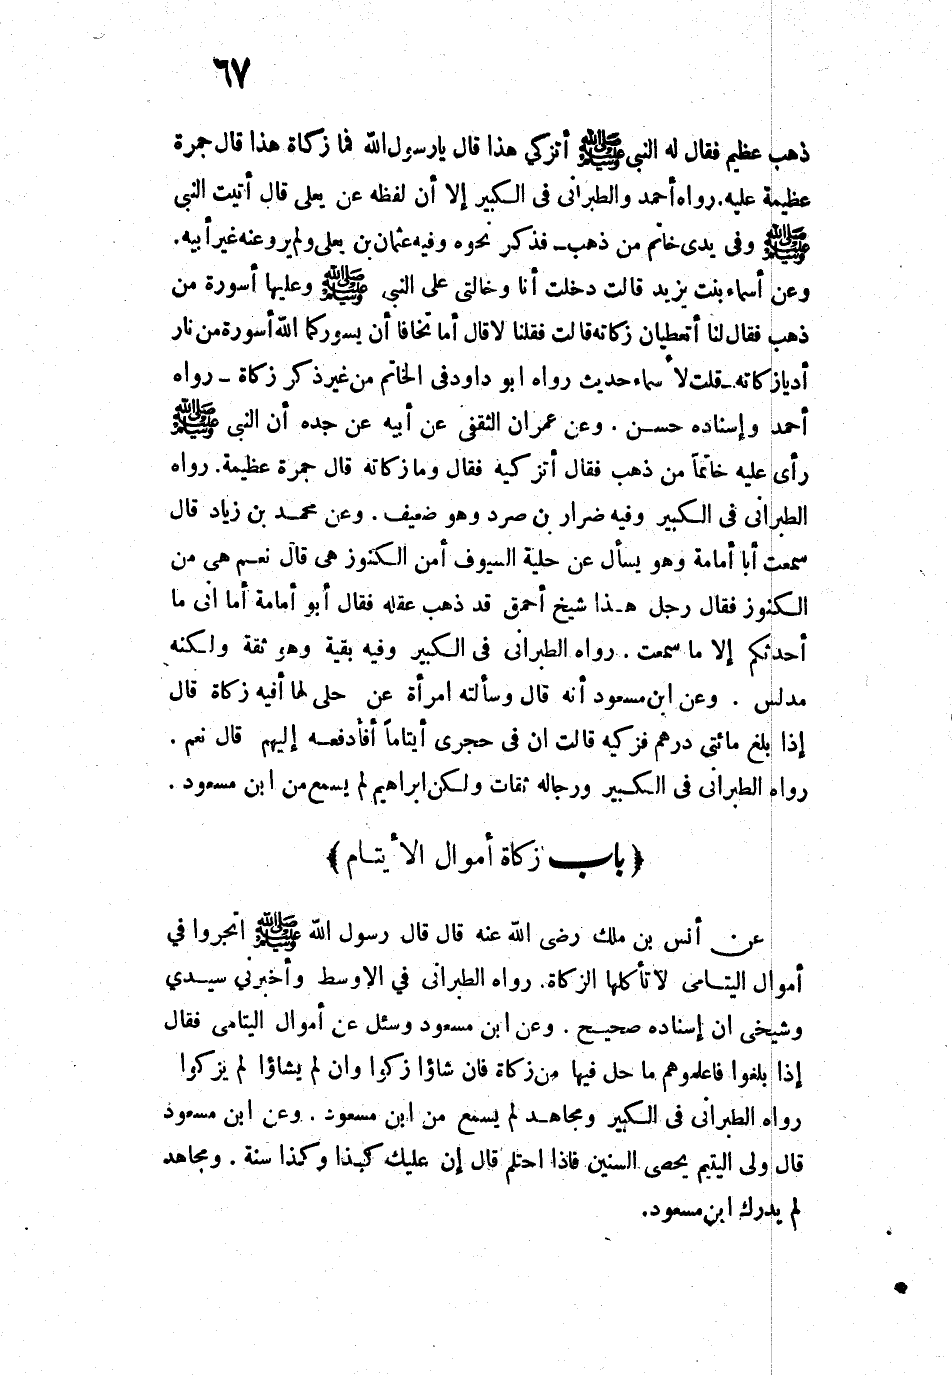 ٦٧
ذهب عظيم فقال له النبي ﷺ أتزكي هذا قال يارسول الله فما زكاة هذا قال جمرة
عظيمة عليه. رواه أحمد والطبرانى فى الكبير إلا أن لفظه عن يعلى قال أتيت النبي
ﷺ وفى يدى خاتم من ذهب ـ فذكر نحوه وفيه عثمان بن يعلى ولم يرو عنه غير أبيه.
وعن أسماء بنت يزيد قالت دخلت أنا وخالتى على النبي ﷺ وعليها أسورة من
ذهب فقال لنا أتعطيان زكاته قالت فقلنا لا قال أما تخافا أن يسوركما الله أسورة من نار
أديا زكاته ـ قلت لأسماء حديث رواه ابو داود فى الخاتم من غير ذكر زكاة ـ رواه
أحمد وإسناده حسن . وعن عمران الثقفى عن أبيه عن جده أن النبى ﷺ
رأى عليه خاتماً من ذهب فقال أتزكيه فقال وما زكاته قال جمرة عظيمة. رواه
الطبرانى فى الكبير وفيه ضرار بن صرد وهو ضعيف . وعن محمد بن زياد قال
سمعت أبا أمامة وهو يسأل عن حلية السيوف أمن الكنوز هى قال نعم هى من
الكنوز فقال رجل هذا شيخ أحمق قد ذهب عقله فقال أبو أمامة أما انى ما
أحدثكم إلا ما سمعت . رواه الطبرانى فى الكبير وفيه بقية وهو ثقة ولكنه
مدلس . وعن ابن مسعود أنه قال وسألته امرأة عن حلى لها أفيه زكاة قال
إذا بلغ مائتى درهم فزكيه قالت ان فى حجرى أيتاماً أفأدفعه إليهم قال نعم .
رواه الطبرانى فى الكبير ورجاله ثقات ولكن ابراهيم لم يسمع من ابن مسعود .
﴿ باب زكاة أموال الأيتام ﴾
عن أنس بن ملك رضى الله عنه قال قال رسول الله ﷺ اتجروا في
أموال اليتامى لا تأكلها الزكاة. رواه الطبرانى في الاوسط وأخبرني سيدي
وشيخى ان إسناده صحيح . وعن ابن مسعود وسئل عن أموال اليتامى فقال
إذا بلغوا فاعلموهم ما حل فيها من زكاة فان شاؤا زكوا وان لم يشاؤا لم يزكوا
رواه الطبرانى فى الكبير ومجاهد لم يسمع من ابن مسعود . وعن ابن مسعود
قال ولى اليتيم يحصى السنين فاذا احتلم قال إن عليك كذا وكذا سنة . ومجاهد
لم يدرك ابن مسعود.